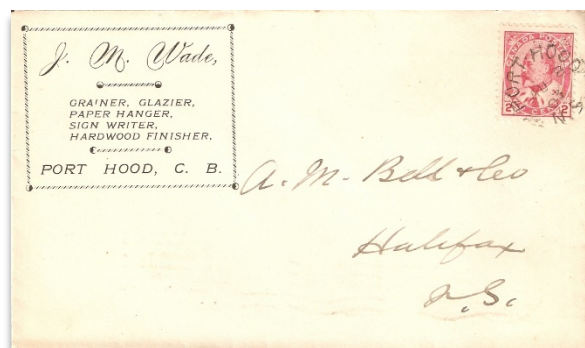 J. M. Wade,
GRAINER, GLAZIER,
PAPER HANGER,
SIGN WRITER,
HARDWOOD FINISHER.
PORT HOOD, C. B.
PORT HOOD
N.S
2 CENTS
A. M. Bell & Co
Halifax
N.S.